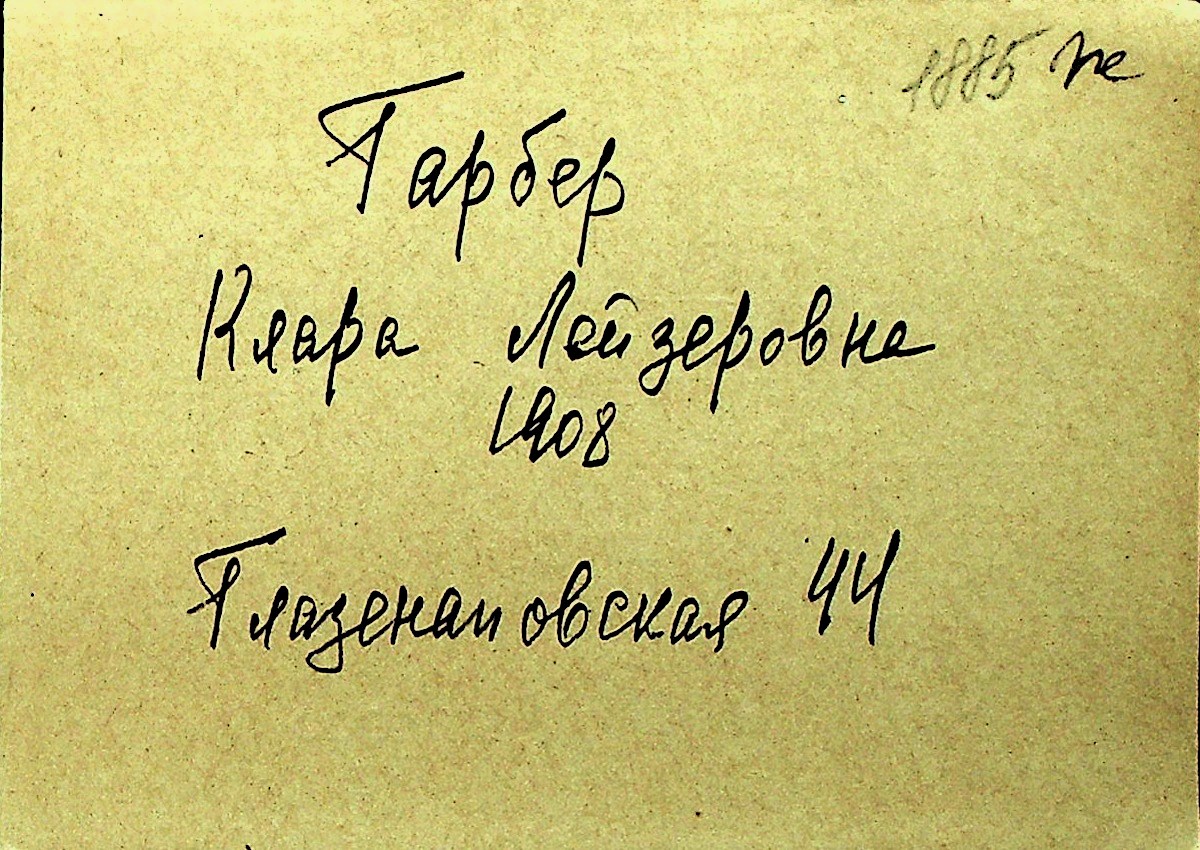 1885 пе
Гарбер
Клара Лейзеровна
1908
Глазенаповская 44